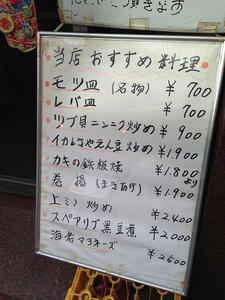 当店 おすすめ 料理
モツ皿 (名物) ¥700
レバ皿 ¥700
ツブ貝ニンニク炒め ¥900
イカしさやえん豆炒め ¥1,900
カキの鉄板焼 ¥1,800より
巻揚(まきあげ) ¥1,900
上ミノ炒め ¥2400
スペアリブ黒豆煮 ¥2000
海老マヨネーズ ¥2600